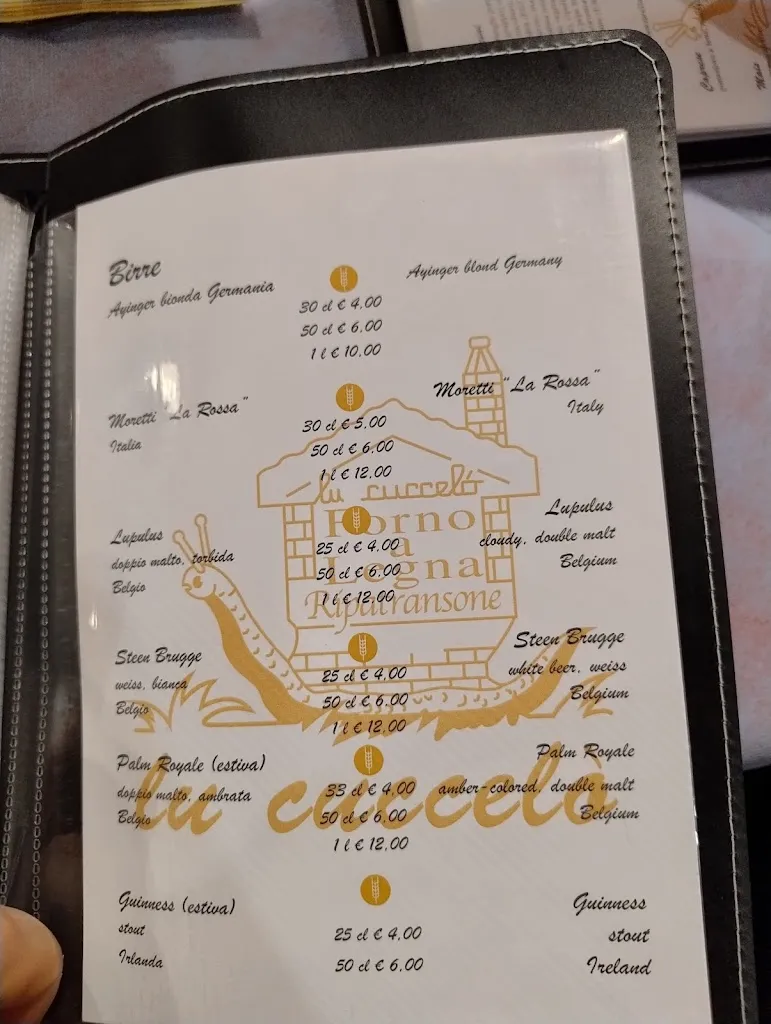 Birre
Ayinger bionda Germania
Ayinger blond Germany
30 cl € 4,00
50 cl € 6,00
1 l € 10,00
Moretti "La Rossa"
Italia
Moretti "La Rossa"
Italy
30 cl € 5,00
50 cl € 6,00
1 l € 12,00
lu cuccelò
Forno
a
Legna
Ripatransone
Lupulus
doppio malto, torbida
Belgio
Lupulus
cloudy, double malt
Belgium
25 cl € 4,00
50 cl € 6,00
1 l € 12,00
Steen Brugge
weiss, bianca
Belgio
Steen Brugge
white beer, weiss
Belgium
25 cl € 4,00
50 cl € 6,00
1 l € 12,00
Palm Royale (estiva)
doppio malto, ambrata
Belgio
Palm Royale
amber-colored, double malt
Belgium
33 cl € 4,00
50 cl € 6,00
1 l € 12,00
lu cuccelò
Guinness (estiva)
stout
Irlanda
Guinness
stout
Ireland
25 cl € 4,00
50 cl € 6,00